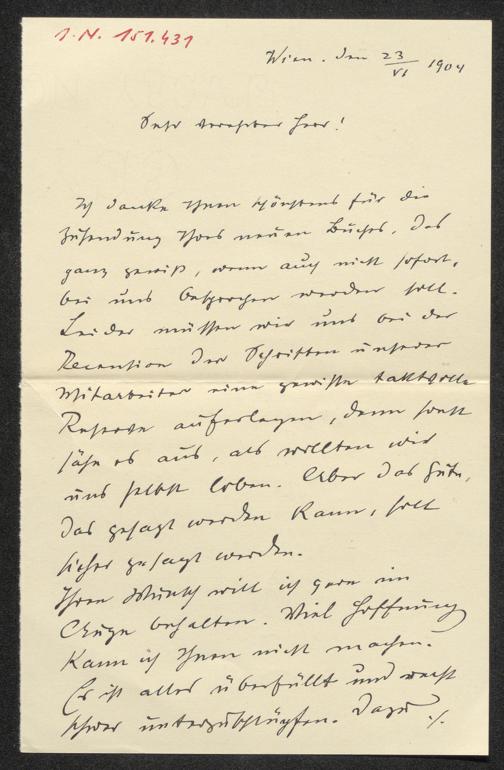 J. N. 151.431
Wien. den 23/VI 1904
Sehr verehrter Herr!
Ich danke Ihnen schönstens für die
Zusendung Ihres neuen Buches, das
ganz gewiß, wenn auch nicht sofort,
bei uns besprochen werden soll.
Leider müssen wir uns bei der
Recension der Schriften unserer
Mitarbeiter eine gewisse taktvolle
Reserve auferlegen, denn sonst
sähe es aus, als wollten wir
uns selbst loben. Aber das Gute,
das gesagt werden kann, soll
sicher gesagt werden.
Ihren Wunsch will ich gern im
Auge behalten. Viel Hoffnung
kann ich Ihnen nicht machen.
Es ist alles überfüllt und recht
schwer unterzuschlüpfen. Dazu
./.